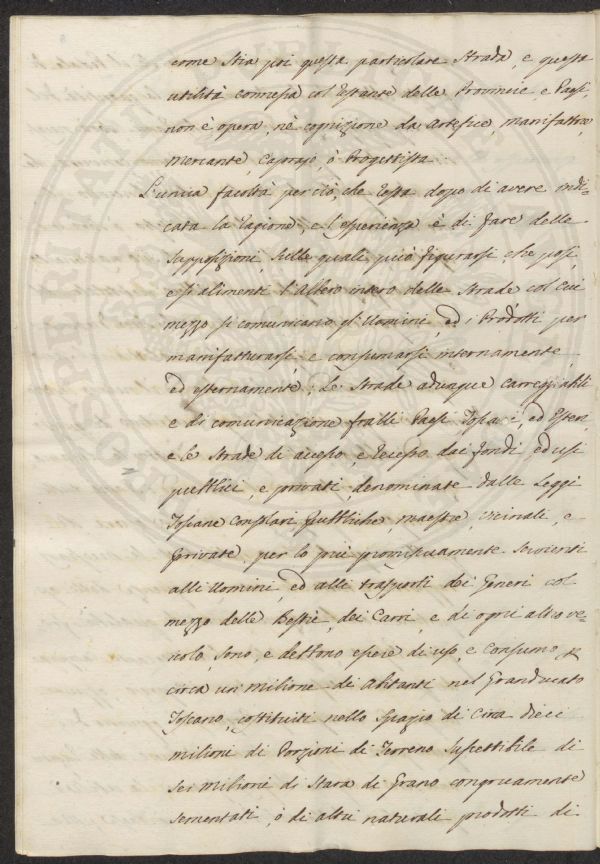 come stia poi questa particolare Strada, e questa
utilità connessa col restante delle Provincie, e Paesi,
non è opera, nè cognizione da Artefice, manifattore,
mercante, Caprajo, ò Progettista.
L'unica facoltà perciò, che resta dopo di avere indi=
cata la ragione, e l'esperienza è di fare delle
supposizioni, sulle quali può figurarsi che posi,
e si alimenti l'Albero intero delle Strade col cui
mezzo si comunicano gl'Uomini, ed i Prodotti per
manifatturarsi, e consumarsi internamente,
ed esternamente; Le Strade adunque carreggiabili
e di comunicazione fralli Paesi Toscani, ed Esteri,
e le Strade di accesso, e recesso dai fondi ed usi
pubblici, e privati, denominate dalle Leggi
Toscane Consolari Pubbliche, maestre, vicinali, e
private, per lo più promiscuamente servienti
alli Uomini, ed alli trasporti dei Generi col
mezzo delle Bestie, dei Carri, e di ogni altro ve=
icolo, sono, e debbono essere di uso, e consumo
circa un milione di Abitanti nel Granducato
Toscano, costituiti nello spazio di circa dieci
milioni di Porzioni di Terreno suscettibile di
sei milioni di Stara di Grano congruamente
sementati, ò di altri naturali prodotti di
PROSPERITATI PUBLICAE